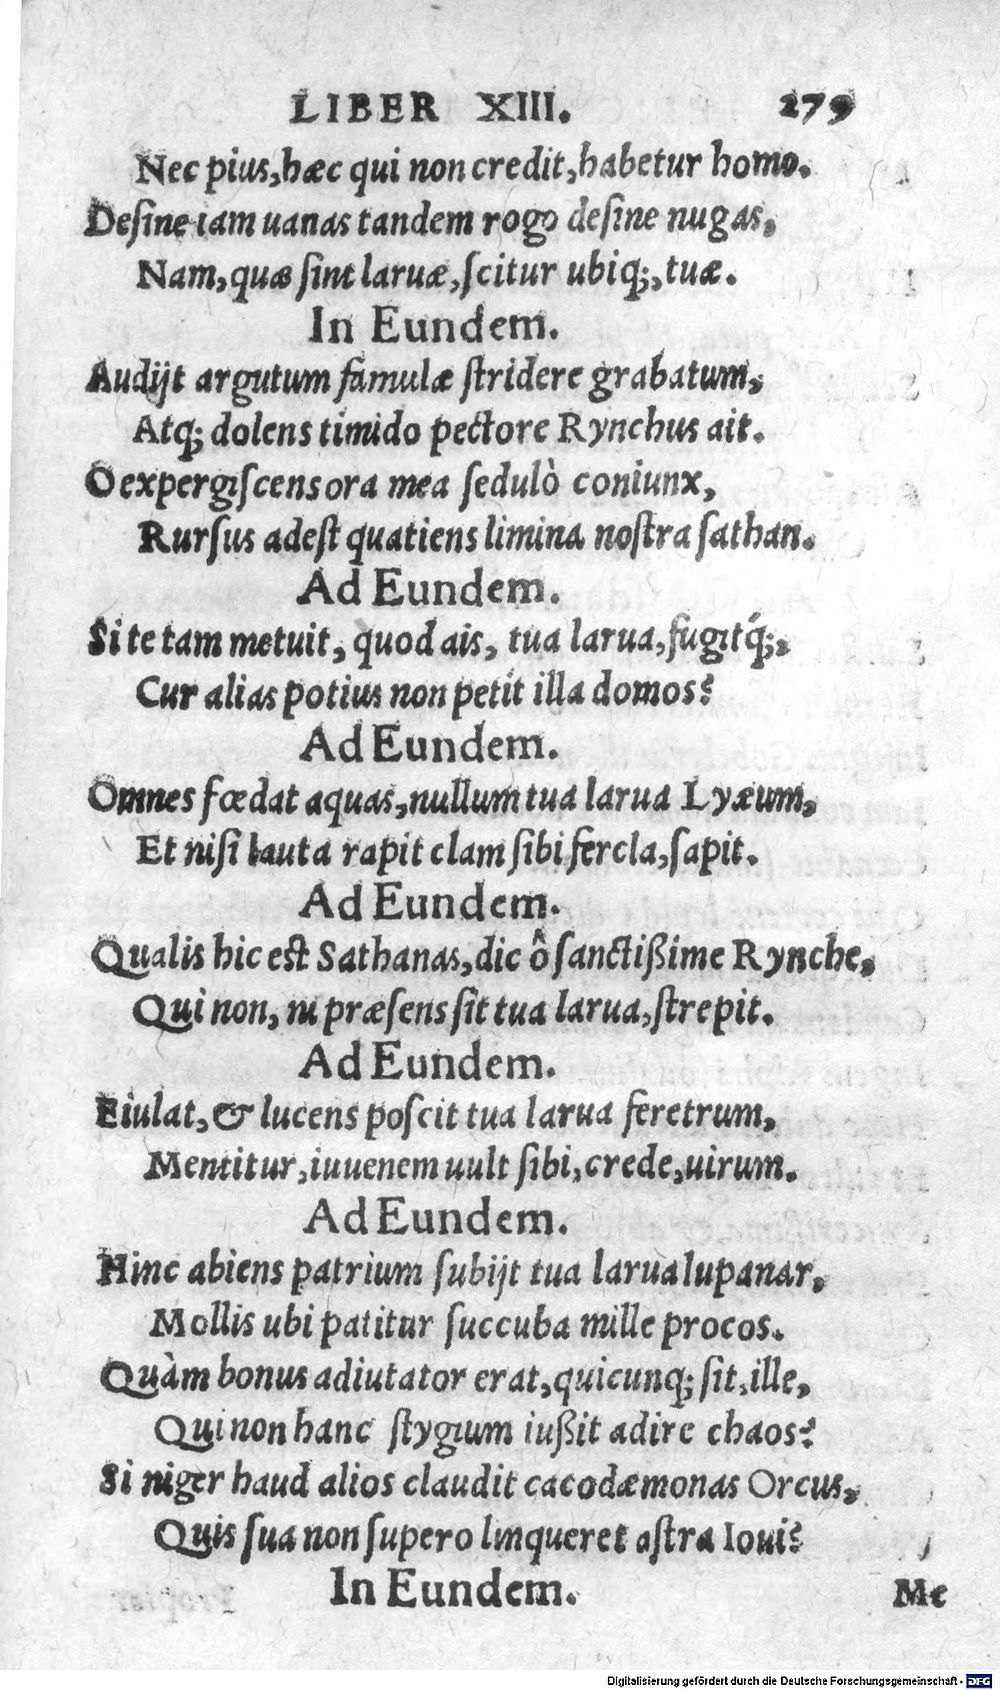 LIBER XIII. 279
Nec pius, hæc qui non credit, habetur homo.
Desine iam uanas tandem rogo desine nugas,
Nam, quæ sint laruæ, scitur ubiq;, tuæ.
In Eundem.
Audijt argutum famulæ stridere grabatum,
Atq; dolens timido pectore Rynchus ait.
O expergiscens ora mea sedulò coniunx,
Rursus adest quatiens limina nostra sathan.
Ad Eundem.
Si te tam metuit, quod ais, tua larua, fugitq́;,
Cur alias potius non petit illa domos?
Ad Eundem.
Omnes fœdat aquas, nullum tua larua Lyæum,
Et nisi lauta rapit clam sibi fercla, sapit.
Ad Eundem.
Qualis hic est Sathanas, dic ô sanctißime Rynche,
Qui non, ni præsens sit tua larua, strepit.
Ad Eundem.
Eiulat, & lucens poscit tua larua feretrum,
Mentitur, iuuenem uult sibi, crede, uirum.
Ad Eundem.
Hinc abiens patrium subijt tua larua lupanar,
Mollis ubi patitur succuba mille procos.
Quàm bonus adiutator erat, quicunq; sit, ille,
Qui non hanc stygium iußit adire chaos?
Si niger haud alios claudit cacodæmonas Orcus,
Quis sua non supero linqueret astra Ioui?
In Eundem.
Me
Digitalisierung gefördert durch die Deutsche Forschungsgemeinschaft - DFG